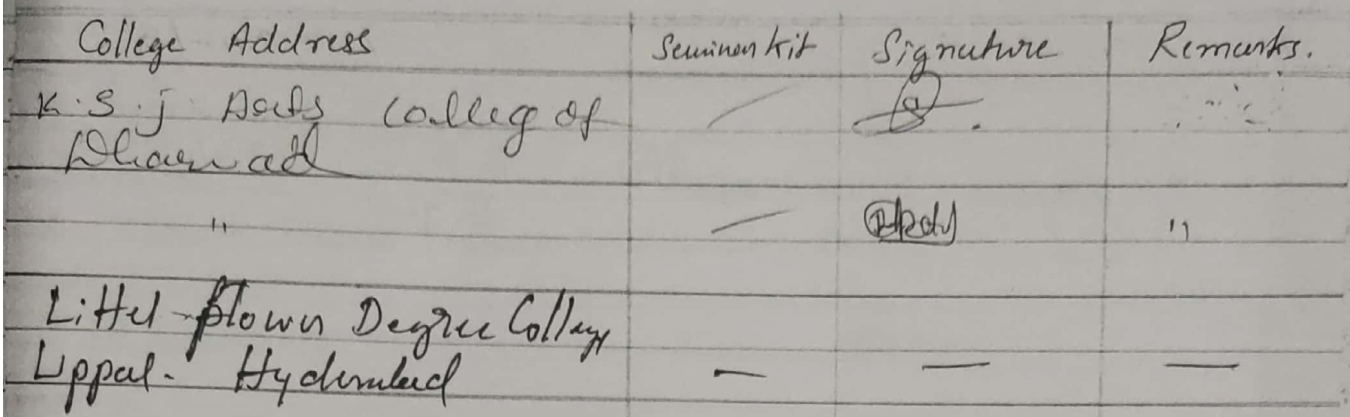 College Address Seminar kit Signature Remarks.
K.S.J Arts Colleg of
Dharwad
" "
Littel flower Degree College
Uppal. Hyderabad — — —